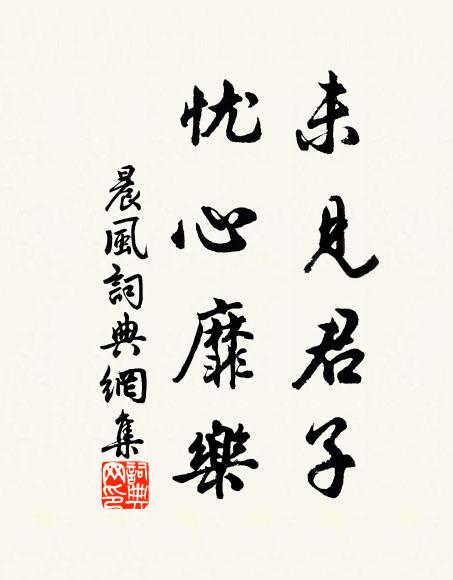 未见君子
忧心靡樂
晨風詞典網集
詞典网印